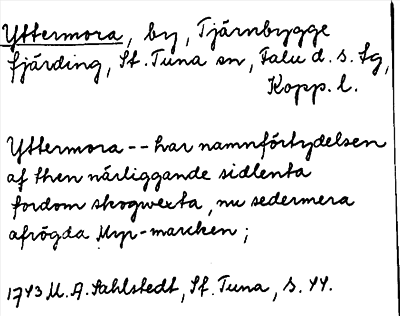 Yttermora, by, Tjärnbygge
fjärding, St. Tuna sn, Falu d. s. fg,
Kopp. l.
Yttermora -- har namnförtydelsen
af then närliggande sidlenta
fordom skogwexta, nu sedermera
afrögda Myr-marcken;
1743 M. A. Sahlstedt, St. Tuna, s. 44.